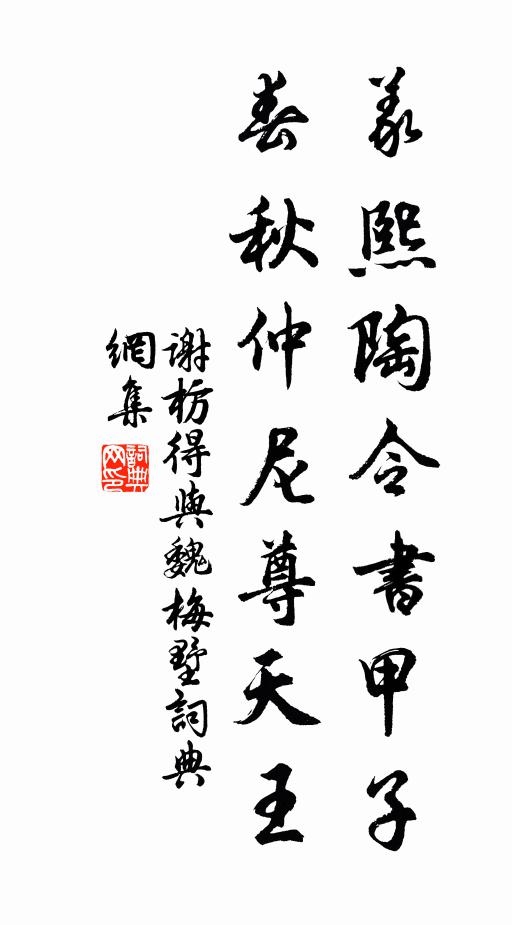 義熙陶令書甲子
春秋仲尼尊天王
謝枋得與魏梅墅詞典
網集
詞典
网印